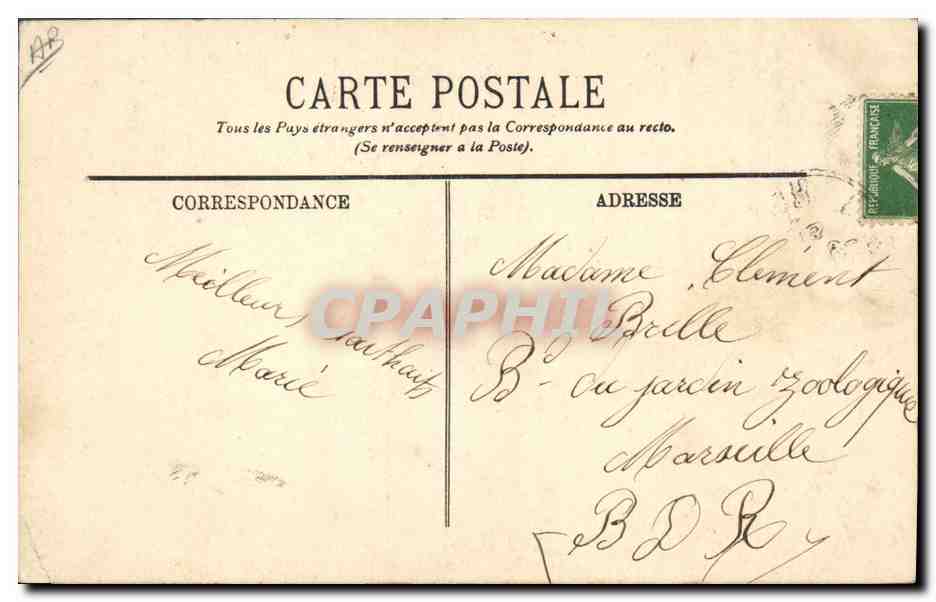 AB
CARTE POSTALE
Tous les Pays étrangers n'acceptent pas la Correspondance au recto.
(Se renseigner a la Poste).
CORRESPONDANCE
Meilleurs souhaits
Marie
ADRESSE
Madame Clement
Brille
Bd du jardin Zoologique
Marseille
B D R
REPUBLIQUE FRANÇAISE
CPAPHIL